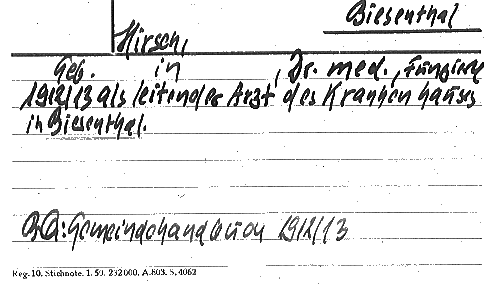 Biesenthal
Hirsch,
Geb. in , Dr. med., fungierte
1912/13 als leitender Arzt des Krankenhauses
in Biesenthal.
BQ: Gemeindehandbuch 1912/13
Reg. 10. Stichnote. 1. 50. 232000. A.803. S. 4062